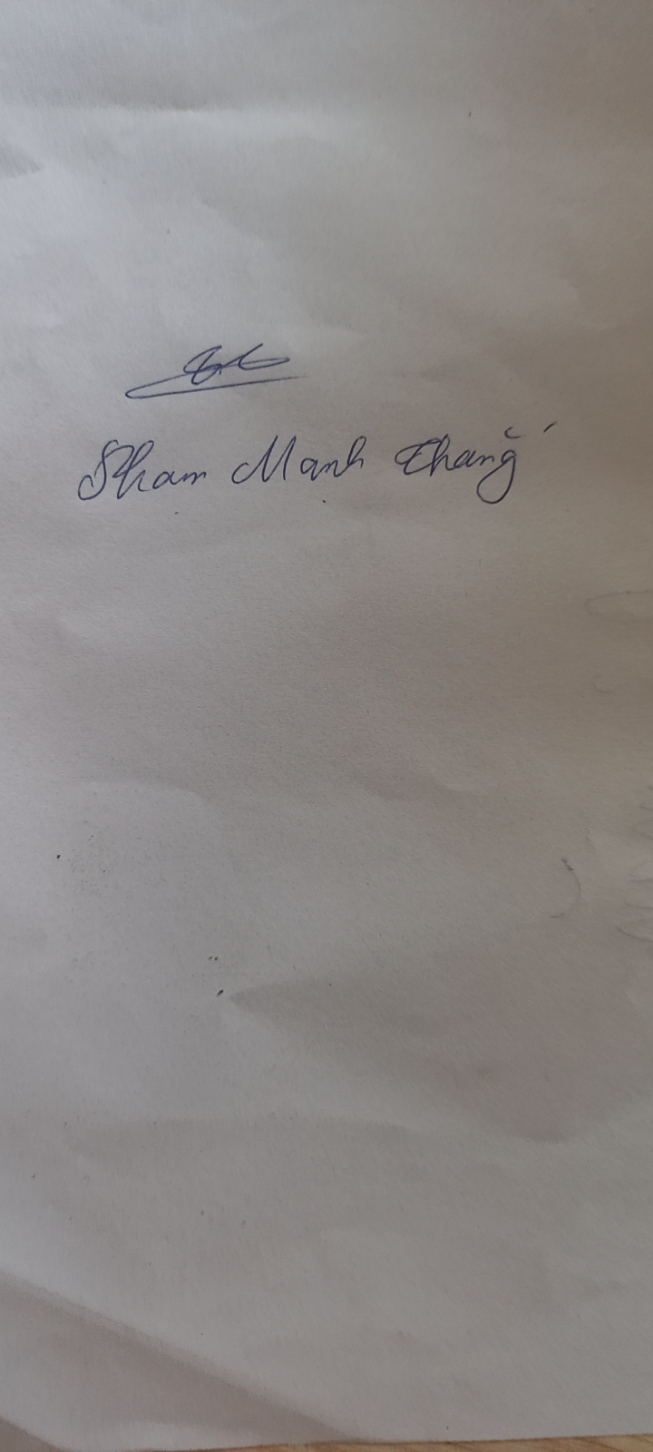 Phạm Mạnh Thắng